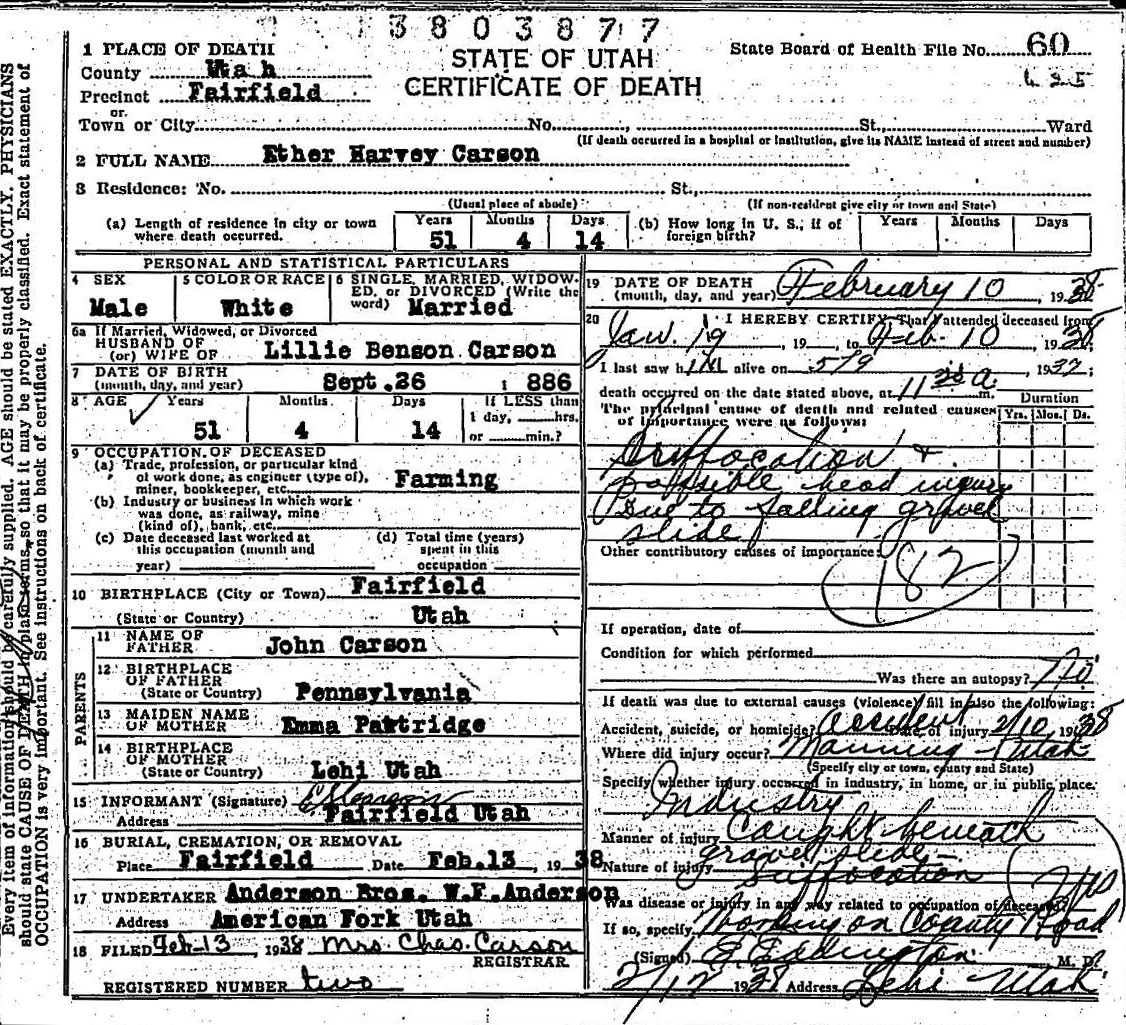 3803877
STATE OF UTAH
CERTIFICATE OF DEATH
State Board of Health File No. 60
1 PLACE OF DEATH
County Utah
Precinct Fairfield
or
Town or City No. St., Ward
(If death occurred in a hospital or institution, give its NAME instead of street and number)
2 FULL NAME Ether Harvey Carson
3 Residence: No. St.,
(Usual place of abode) (If non-resident give city or town and State)
(a) Length of residence in city or town where death occurred. Years 51 Months 4 Days 14
(b) How long in U. S.; if of foreign birth? Years Months Days
PERSONAL AND STATISTICAL PARTICULARS
4 SEX Male
5 COLOR OR RACE White
6 SINGLE, MARRIED, WIDOWED, or DIVORCED (Write the word) Married
6a If Married, Widowed, or Divorced
HUSBAND OF
(or) WIFE OF Lillie Benson Carson
7 DATE OF BIRTH
(month, day, and year) Sept. 26 1886
8 AGE Years 51 Months 4 Days 14
If LESS than
1 day, hrs.
or min.?
9 OCCUPATION OF DECEASED
(a) Trade, profession, or particular kind
of work done, as engineer (type of),
miner, bookkeeper, etc. Farming
(b) Industry or business in which work
was done, as railway, mine
(kind of), bank, etc.
(c) Date deceased last worked at
this occupation (month and
year)
(d) Total time (years)
spent in this
occupation
10 BIRTHPLACE (City or Town) Fairfield
(State or Country) Utah
PARENTS
11 NAME OF
FATHER John Carson
12 BIRTHPLACE
OF FATHER
(State or Country) Pennsylvania
13 MAIDEN NAME
OF MOTHER Emma Partridge
14 BIRTHPLACE
OF MOTHER
(State or Country) Lehi Utah
15 INFORMANT (Signature)
Address Fairfield Utah
16 BURIAL, CREMATION, OR REMOVAL
Place Fairfield Date Feb.13, 1938
17 UNDERTAKER Anderson Bros. W.F.Anderson
Address American Fork Utah
18 FILED Feb-13, 1938 Mrs. Chas. Carson
REGISTRAR
REGISTERED NUMBER two
19 DATE OF DEATH
(month, day, and year) February 10, 1938
20 I HEREBY CERTIFY That I attended deceased from
Jan. 19, 19 , to Feb. 10, 1938
I last saw him alive on 5/9, 1937;
death occurred on the date stated above, at 11 a m.
The principal cause of death and related causes
of importance were as follows:
Duration
Yrs. Mos. Ds.
Suffocation &
possible head injury
Due to falling gravel
slide
Other contributory causes of importance:
182
If operation, date of
Condition for which performed
Was there an autopsy? No.
If death was due to external causes (violence) fill in also the following:
Accident, suicide, or homicide? Accident Date of injury 2/10, 1938
Where did injury occur? Manning Utah
(Specify city or town, county and State)
Specify whether injury occurred in industry, in home, or in public place.
Industry
Manner of injury Caught beneath
gravel slide -
Nature of injury Suffocation
Was disease or injury in any way related to occupation of deceased? Yes
If so, specify Working on County Road
(Signed) E Eddington M. D.
2/12 1938 Address Lehi Utah
Every item of information should be carefully supplied. AGE should be stated EXACTLY. PHYSICIANS
should state CAUSE OF DEATH in plain terms, so that it may be properly classified. Exact statement of
OCCUPATION is very important. See instructions on back of certificate.